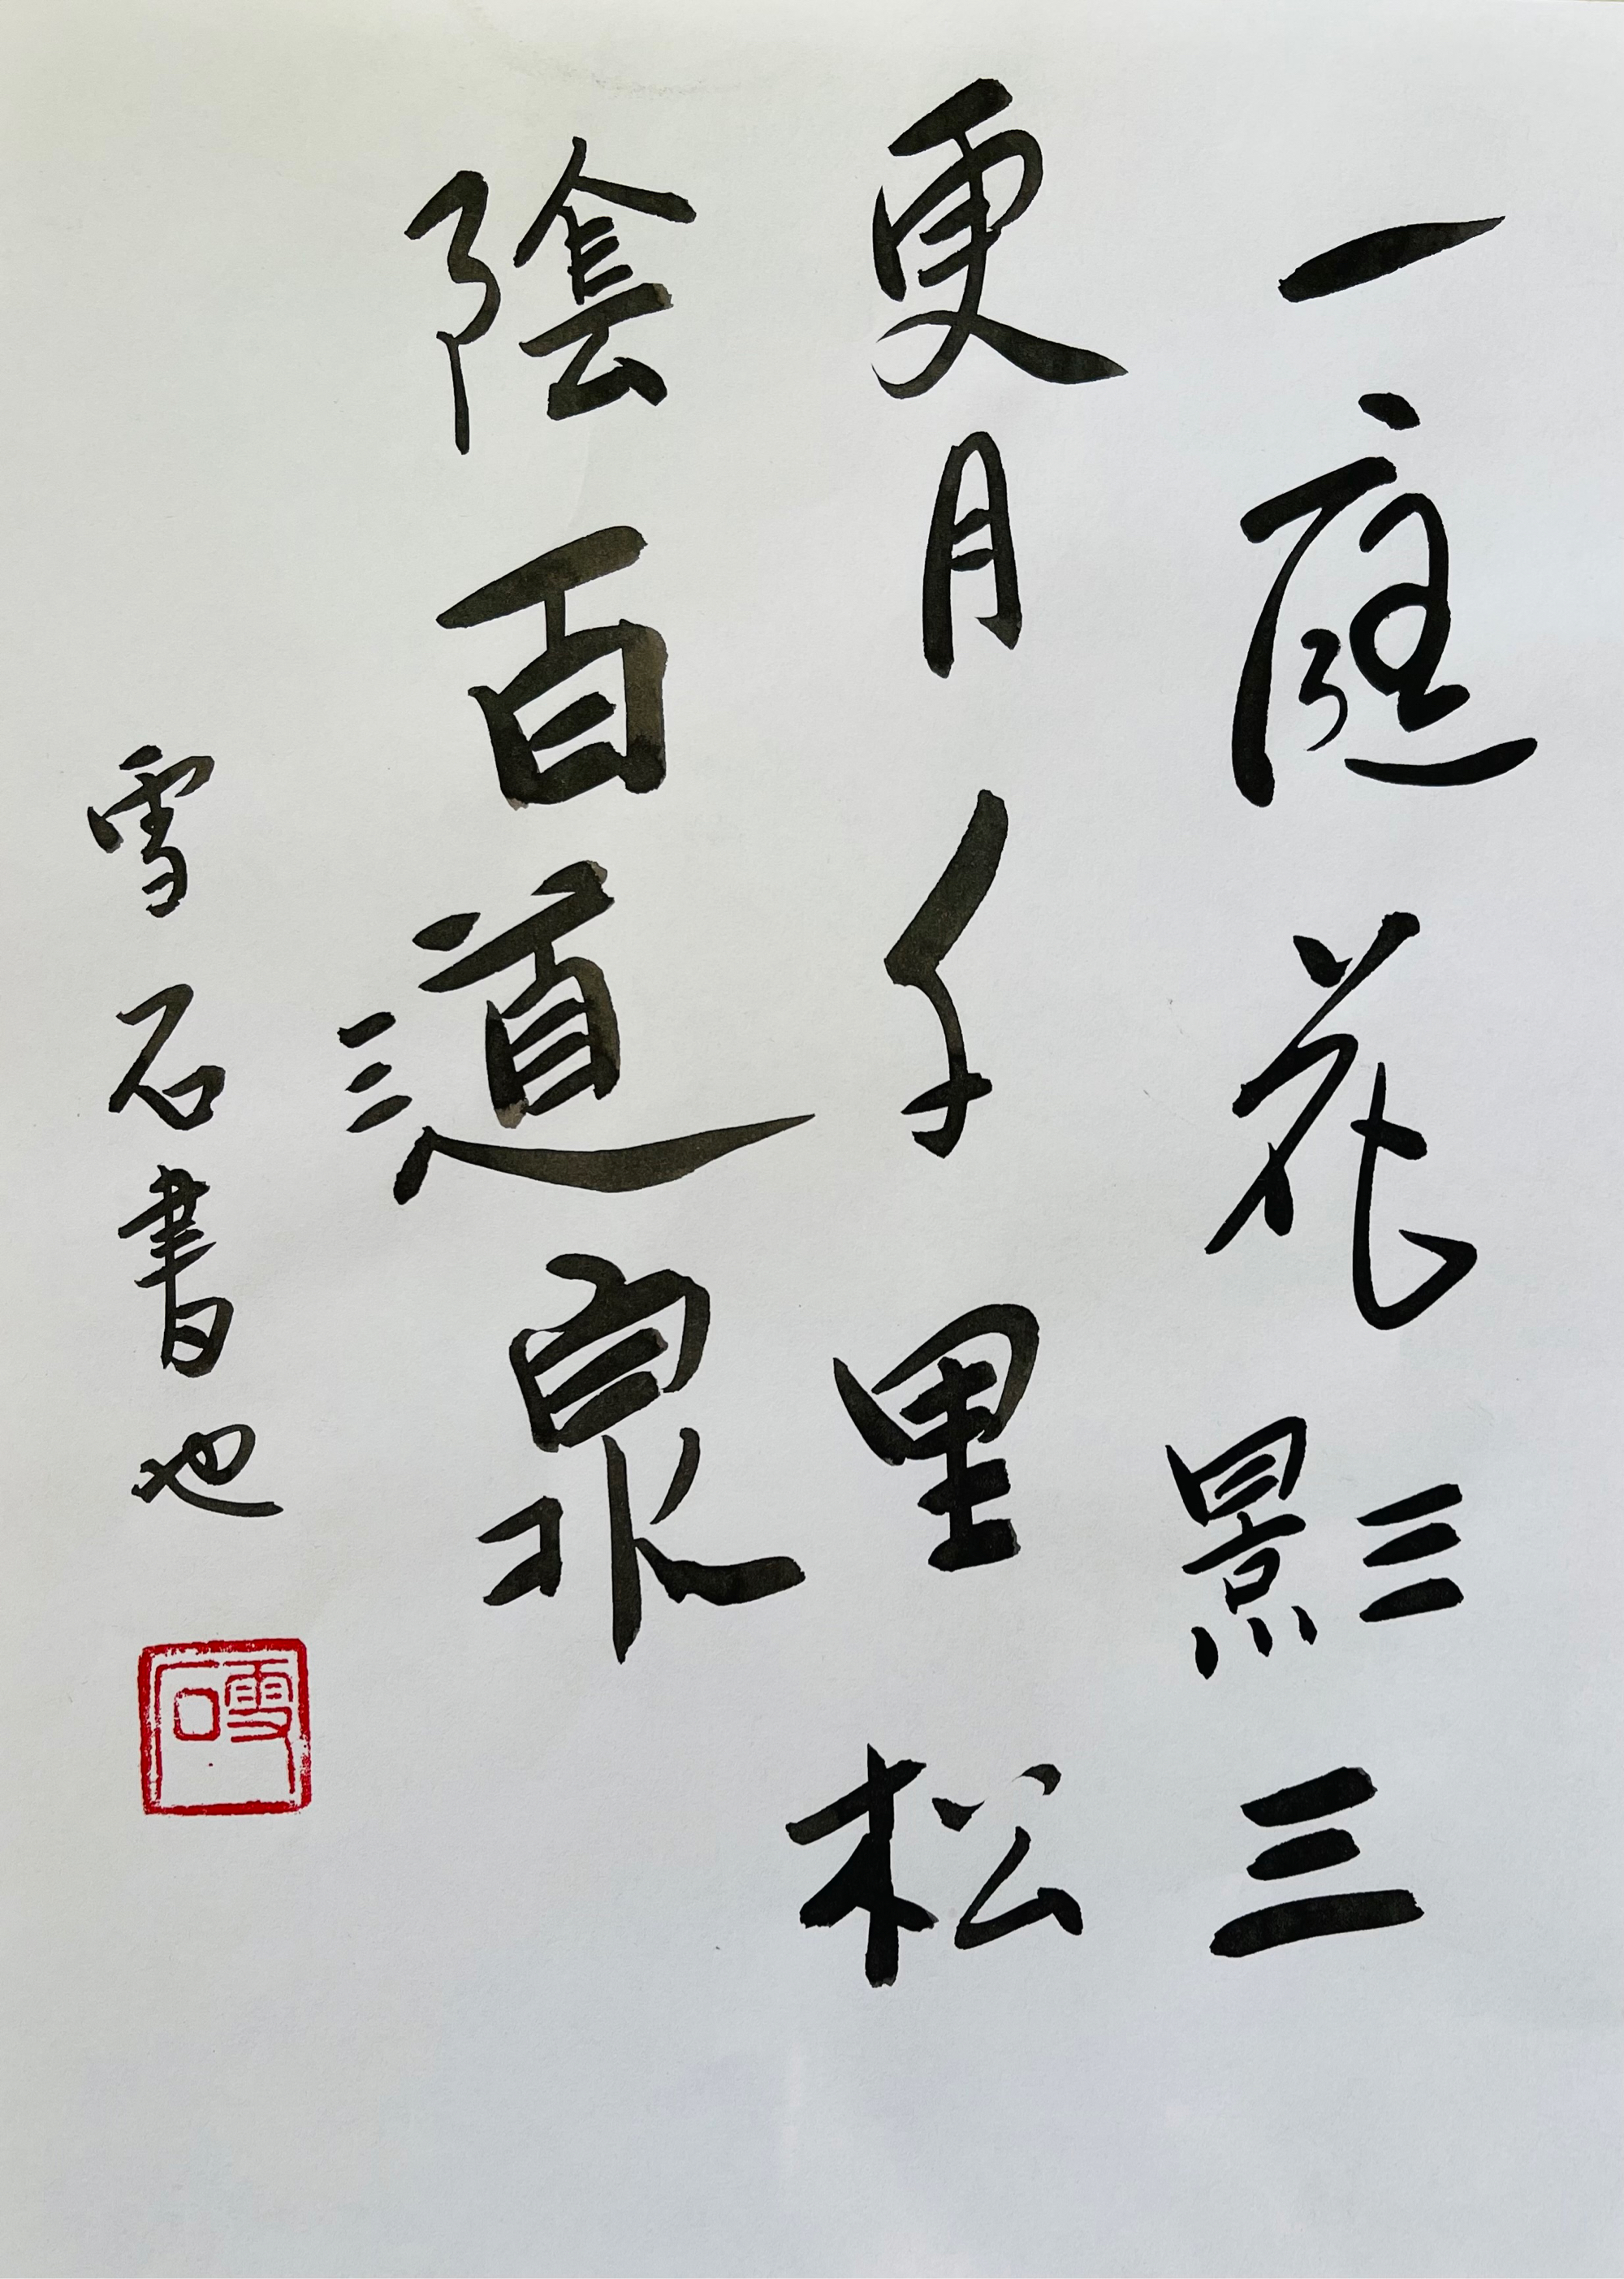 一庭花影三
更月千里松
陰百道泉
雪石書也
雪石